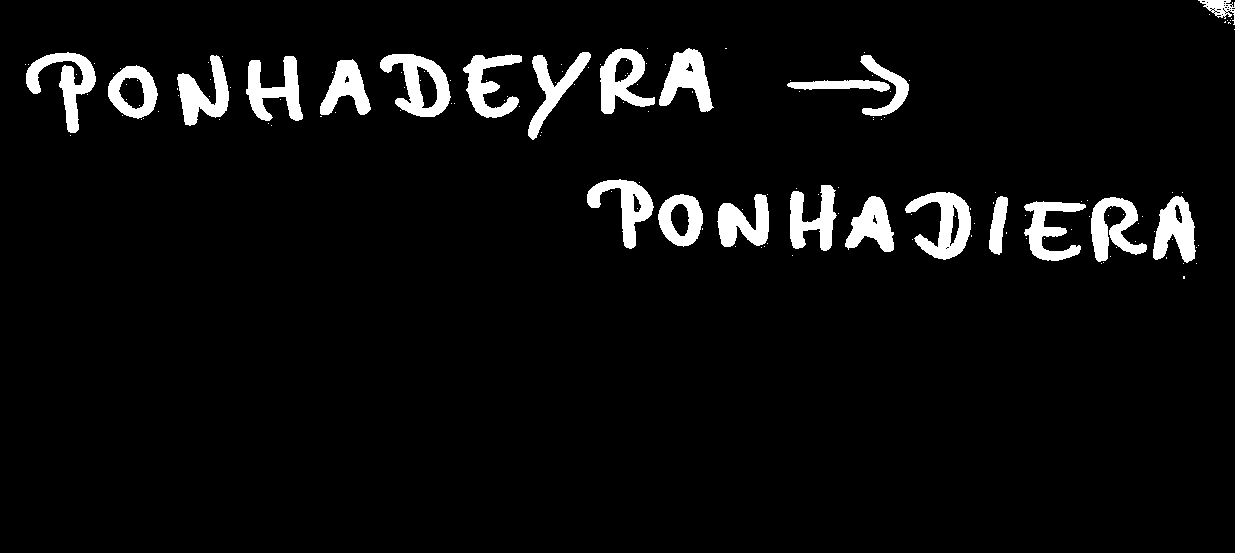 PONHADEYRA →
PONHADIERA